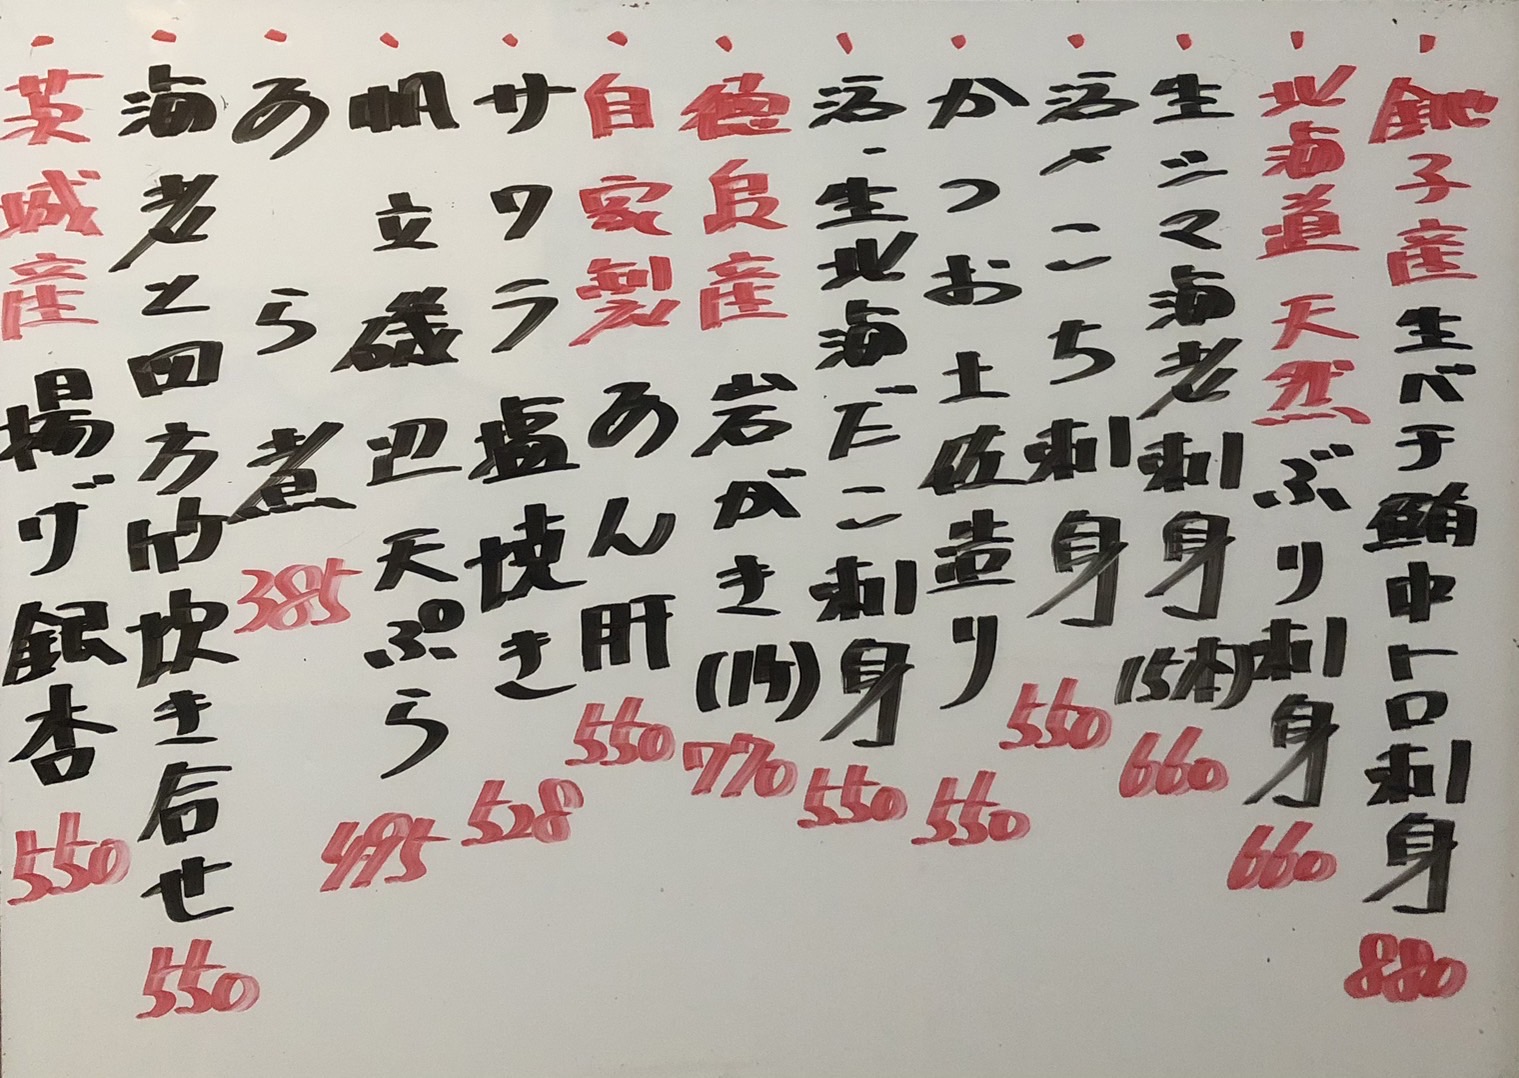 ・銚子産 生バチ鮪中トロ刺身 880
・北海道 天然 ぶり刺身 660
・生シマ海老刺身(5本) 660
・活〆こち刺身 550
・かつお土佐造り 550
・活・生北海だこ刺身 550
・徳良産 岩がき(1ケ) 770
・自家製 あん肝 550
・サワラ塩焼き 528
・帆立磯辺天ぷら 495
・あら煮 385
・海老と四方竹炊き合せ 550
・茨城産 揚げ銀杏 550